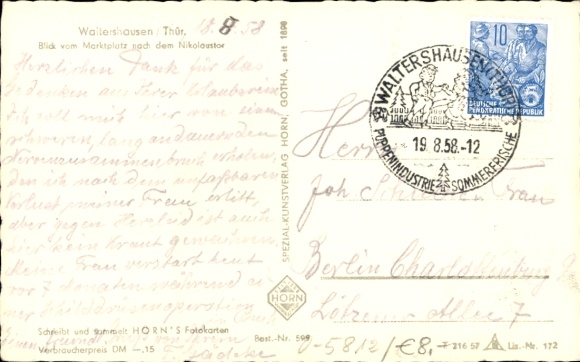 Waltershausen / Thür. 18.8.58
Blick vom Marktplatz nach dem Nikolaustor
Herzlichen Dank für das
Gedenken aus Ihrer
Ich soll mich hier von einem
schweren, lang andauernden
Nervenzusammenbruch erholen,
den ich nach dem unfaßbaren
Verlust meiner Frau erlitt,
aber gegen Herzleid ist auch
hier kein Kraut gewachsen.
Meine Frau verstarb heut
vor 7 Monaten während einer
Schilddrüsenoperation
Schreibt und sammelt HORN'S Fotokarten
Verbraucherpreis DM —,15
SPEZIAL-KUNSTVERLAG HORN, GOTHA, seit 1898
HORN
Best.-Nr. 599
10
DEUTSCHE
DEMOKRATISCHE REPUBLIK
WALTERSHAUSEN (THÜR)
19.8.58.-12
PUPPENINDUSTRIE SOMMERFRISCHE
Joh
Berlin Charlottenburg 9
Lötzener Allee 7
V-5812/€8,-
T 216 57 Liz.-Nr. 172